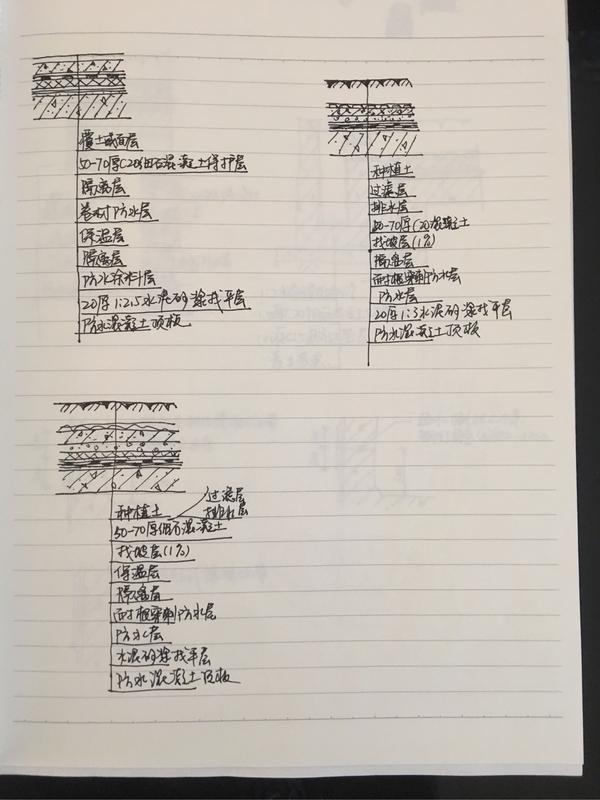 覆土或面层
50-70厚C20细石混凝土保护层
隔离层
卷材防水层
保温层
隔离层
防水涂料层
20厚1:2.5水泥砂浆找平层
防水混凝土顶板
种植土
过滤层
排水层
50-70厚C20混凝土
找坡层(1%)
隔离层
耐根穿刺防水层
防水层
20厚1:3水泥砂浆找平层
防水混凝土顶板
过滤层
排水层
种植土
50-70厚细石混凝土
找坡层(1%)
保温层
隔离层
耐根穿刺防水层
防水层
水泥砂浆找平层
防水混凝土顶板